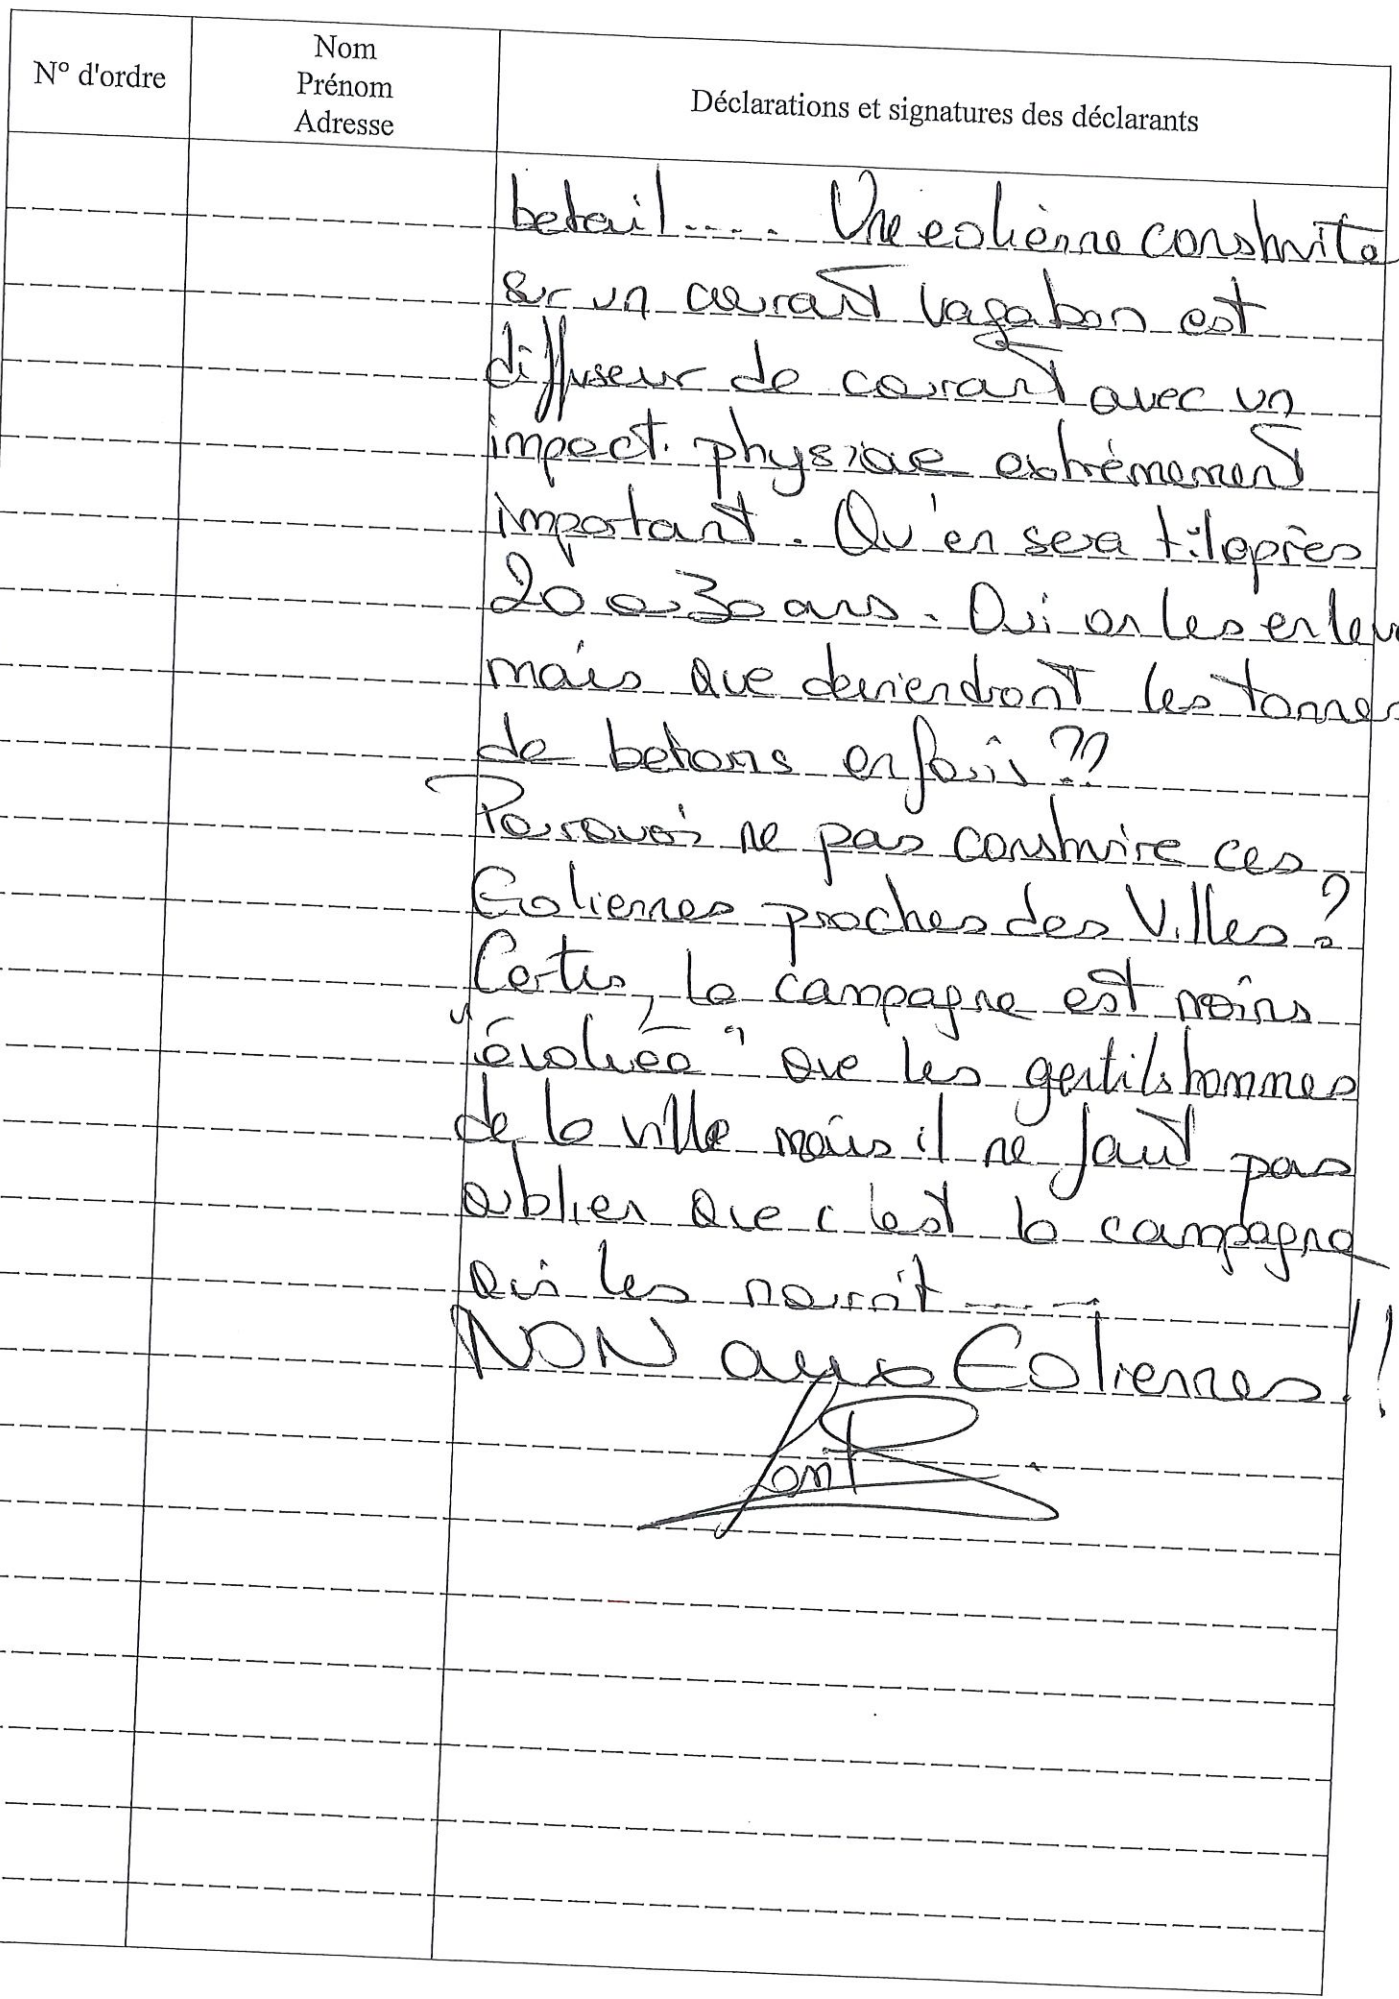 N° d'ordre
Nom
Prénom
Adresse
Déclarations et signatures des déclarants
betail.... Une eoliènne construite
sur un courant vagabon est
diffuseur de courant avec un
impact physique extrèmement
important. Qu'en sera t'il après
20 a 30 ans. Oui on les enlev
mais que deviendront les tonnes
de betons enfouis ??
Pourquoi ne pas construire ces
Eoliennes proches des Villes ?
Certes, la campagne est moins
"évoluée" que les gentilshommes
de la ville mais il ne faut pas
oublier que c'est la campagne
qui les nourit ----
NON aux Eoliennes !!